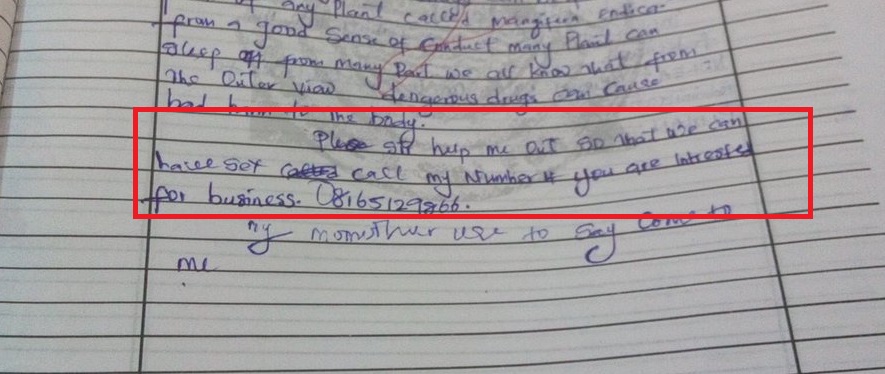 of any Plant called mangifera indica
from a good Sense of Conduct many Plant can
sleep off from many Part we all know that from
the outer view dangerous drugs can cause
bad harm to the body.
Please sir help me out so that we can
have sex called call my Number if you are interested
for business. 08165129866.
my momther use to say come to
me